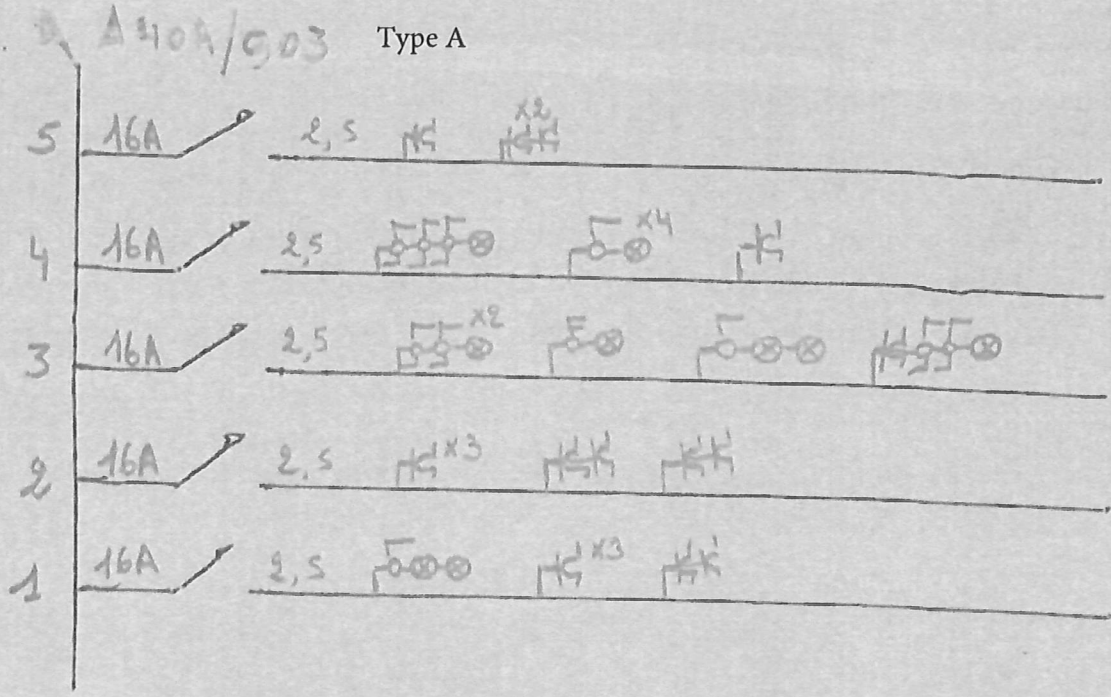 Δ 40A/0,03 Type A
5 16A 2,5 x2
4 16A 2,5 x4
3 16A 2,5 x2
2 16A 2,5 x3
1 16A 2,5 x3